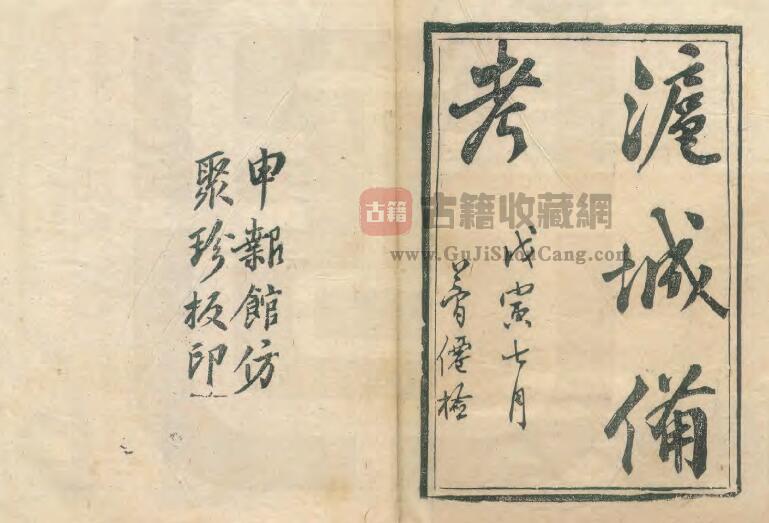 滬城備
考
戊寅七月
僊檢
申報館仿
聚珍板印
古籍 古籍收藏網
www.GuJiShouCang.com